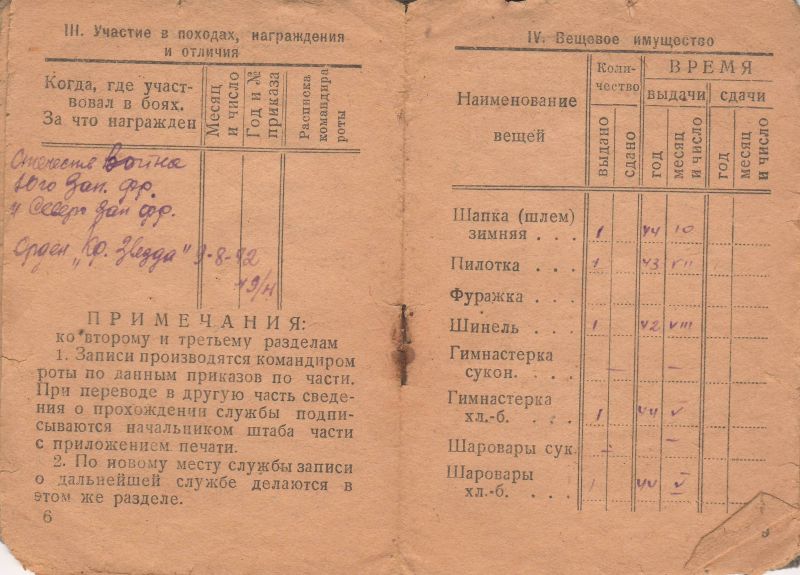 III. Участие в походах, награждения
и отличия
Когда, где участ-
вовал в боях.
За что награжден
Месяц
и число
Год и №
приказа
Расписка
командира
роты
Отечеств война
Юго Зап. фр.
и Северо Зап фр.
Орден „Кр. Звезда" 9-8-42
ПРИМЕЧАНИЯ:
ко второму и третьему разделам
1. Записи производятся командиром
роты по данным приказов по части.
При переводе в другую часть сведе-
ния о прохождении службы подпи-
сываются начальником штаба части
с приложением печати.
2. По новому месту службы записи
о дальнейшей службе делаются в
этом же разделе.
6
IV. Вещевое имущество
Наименование
вещей
Коли-
чество
ВРЕМЯ
выдачи
сдачи
выдано
сдано
год
месяц
и число
год
месяц
и число
Шапка (шлем)
зимняя . . . 1 44 10
Пилотка . . . 1 43 VII
Фуражка . . .
Шинель . . . 1 42 VIII
Гимнастерка
сукон. . . . - -
Гимнастерка
хл.-б. . . . 1 44 V
Шаровары сук. - -
Шаровары
хл.-б. . . . 1 44 V